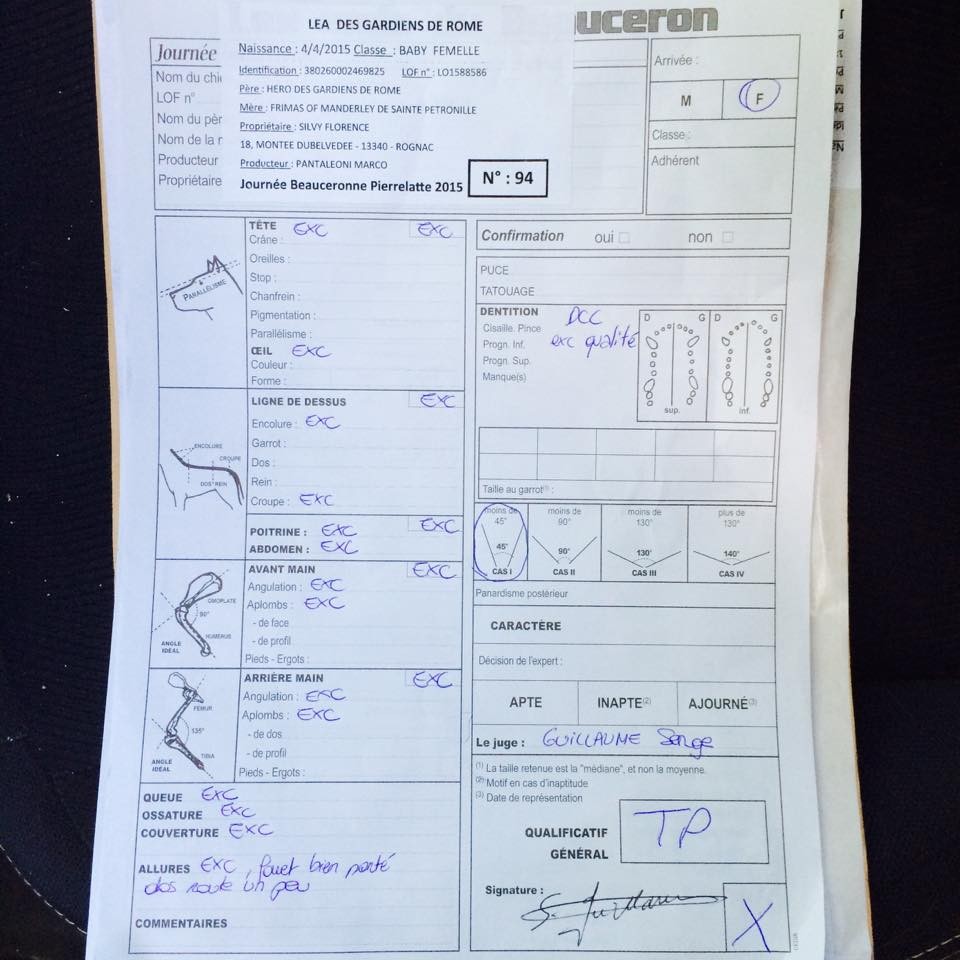 LEA DES GARDIENS DE ROME
uceron
Journée
Naissance : 4/4/2015 Classe : BABY FEMELLE
Identification : 380260002469825 LOF n° : LO1588586
Père : HERO DES GARDIENS DE ROME
Mère : FRIMAS OF MANDERLEY DE SAINTE PETRONILLE
Propriétaire : SILVY FLORENCE
18, MONTEE DUBELVEDEE - 13340 - ROGNAC
Producteur : PANTALEONI MARCO
Journée Beauceronne Pierrelatte 2015
N° : 94
Nom du chi
LOF n°
Nom du pèr
Nom de la
Producteur
Propriétaire
Arrivée :
M F
Classe :
Adhérent
TÊTE EXC EXC
Crâne :
Oreilles :
Stop :
Chanfrein :
Pigmentation :
Parallélisme :
ŒIL EXC
Couleur :
Forme :
PARALLÉLISME
LIGNE DE DESSUS EXC
Encolure : EXC
Garrot :
Dos :
Rein :
Croupe : EXC
ENCOLURE
CROUPE
DOS REIN
POITRINE : EXC EXC
ABDOMEN : EXC
AVANT MAIN EXC
Angulation : EXC
Aplombs : EXC
- de face
- de profil
Pieds - Ergots :
OMOPLATE
90°
HUMÉRUS
ANGLE
IDÉAL
ARRIÈRE MAIN EXC
Angulation : EXC
Aplombs : EXC
- de dos
- de profil
Pieds - Ergots :
FÉMUR
135°
TIBIA
ANGLE
IDÉAL
QUEUE EXC
OSSATURE EXC
COUVERTURE EXC
ALLURES EXC, fouet bien porté
dos roule un peu
COMMENTAIRES
Confirmation oui non
PUCE
TATOUAGE
DENTITION DCC
Cisaille. Pince exc qualité
Progn. Inf.
Progn. Sup.
Manque(s)
D G D G
sup. inf.
Taille au garrot(1) :
moins de 45° moins de 90° moins de 130° plus de 130°
45° 90° 130° 140°
CAS I CAS II CAS III CAS IV
Panardisme postérieur
CARACTÈRE
Décision de l'expert :
APTE INAPTE(2) AJOURNÉ(3)
Le juge : GUILLAUME Serge
(1) La taille retenue est la "médiane", et non la moyenne.
(2) Motif en cas d'inaptitude
(3) Date de représentation
QUALIFICATIF
GÉNÉRAL
TP
Signature :
X